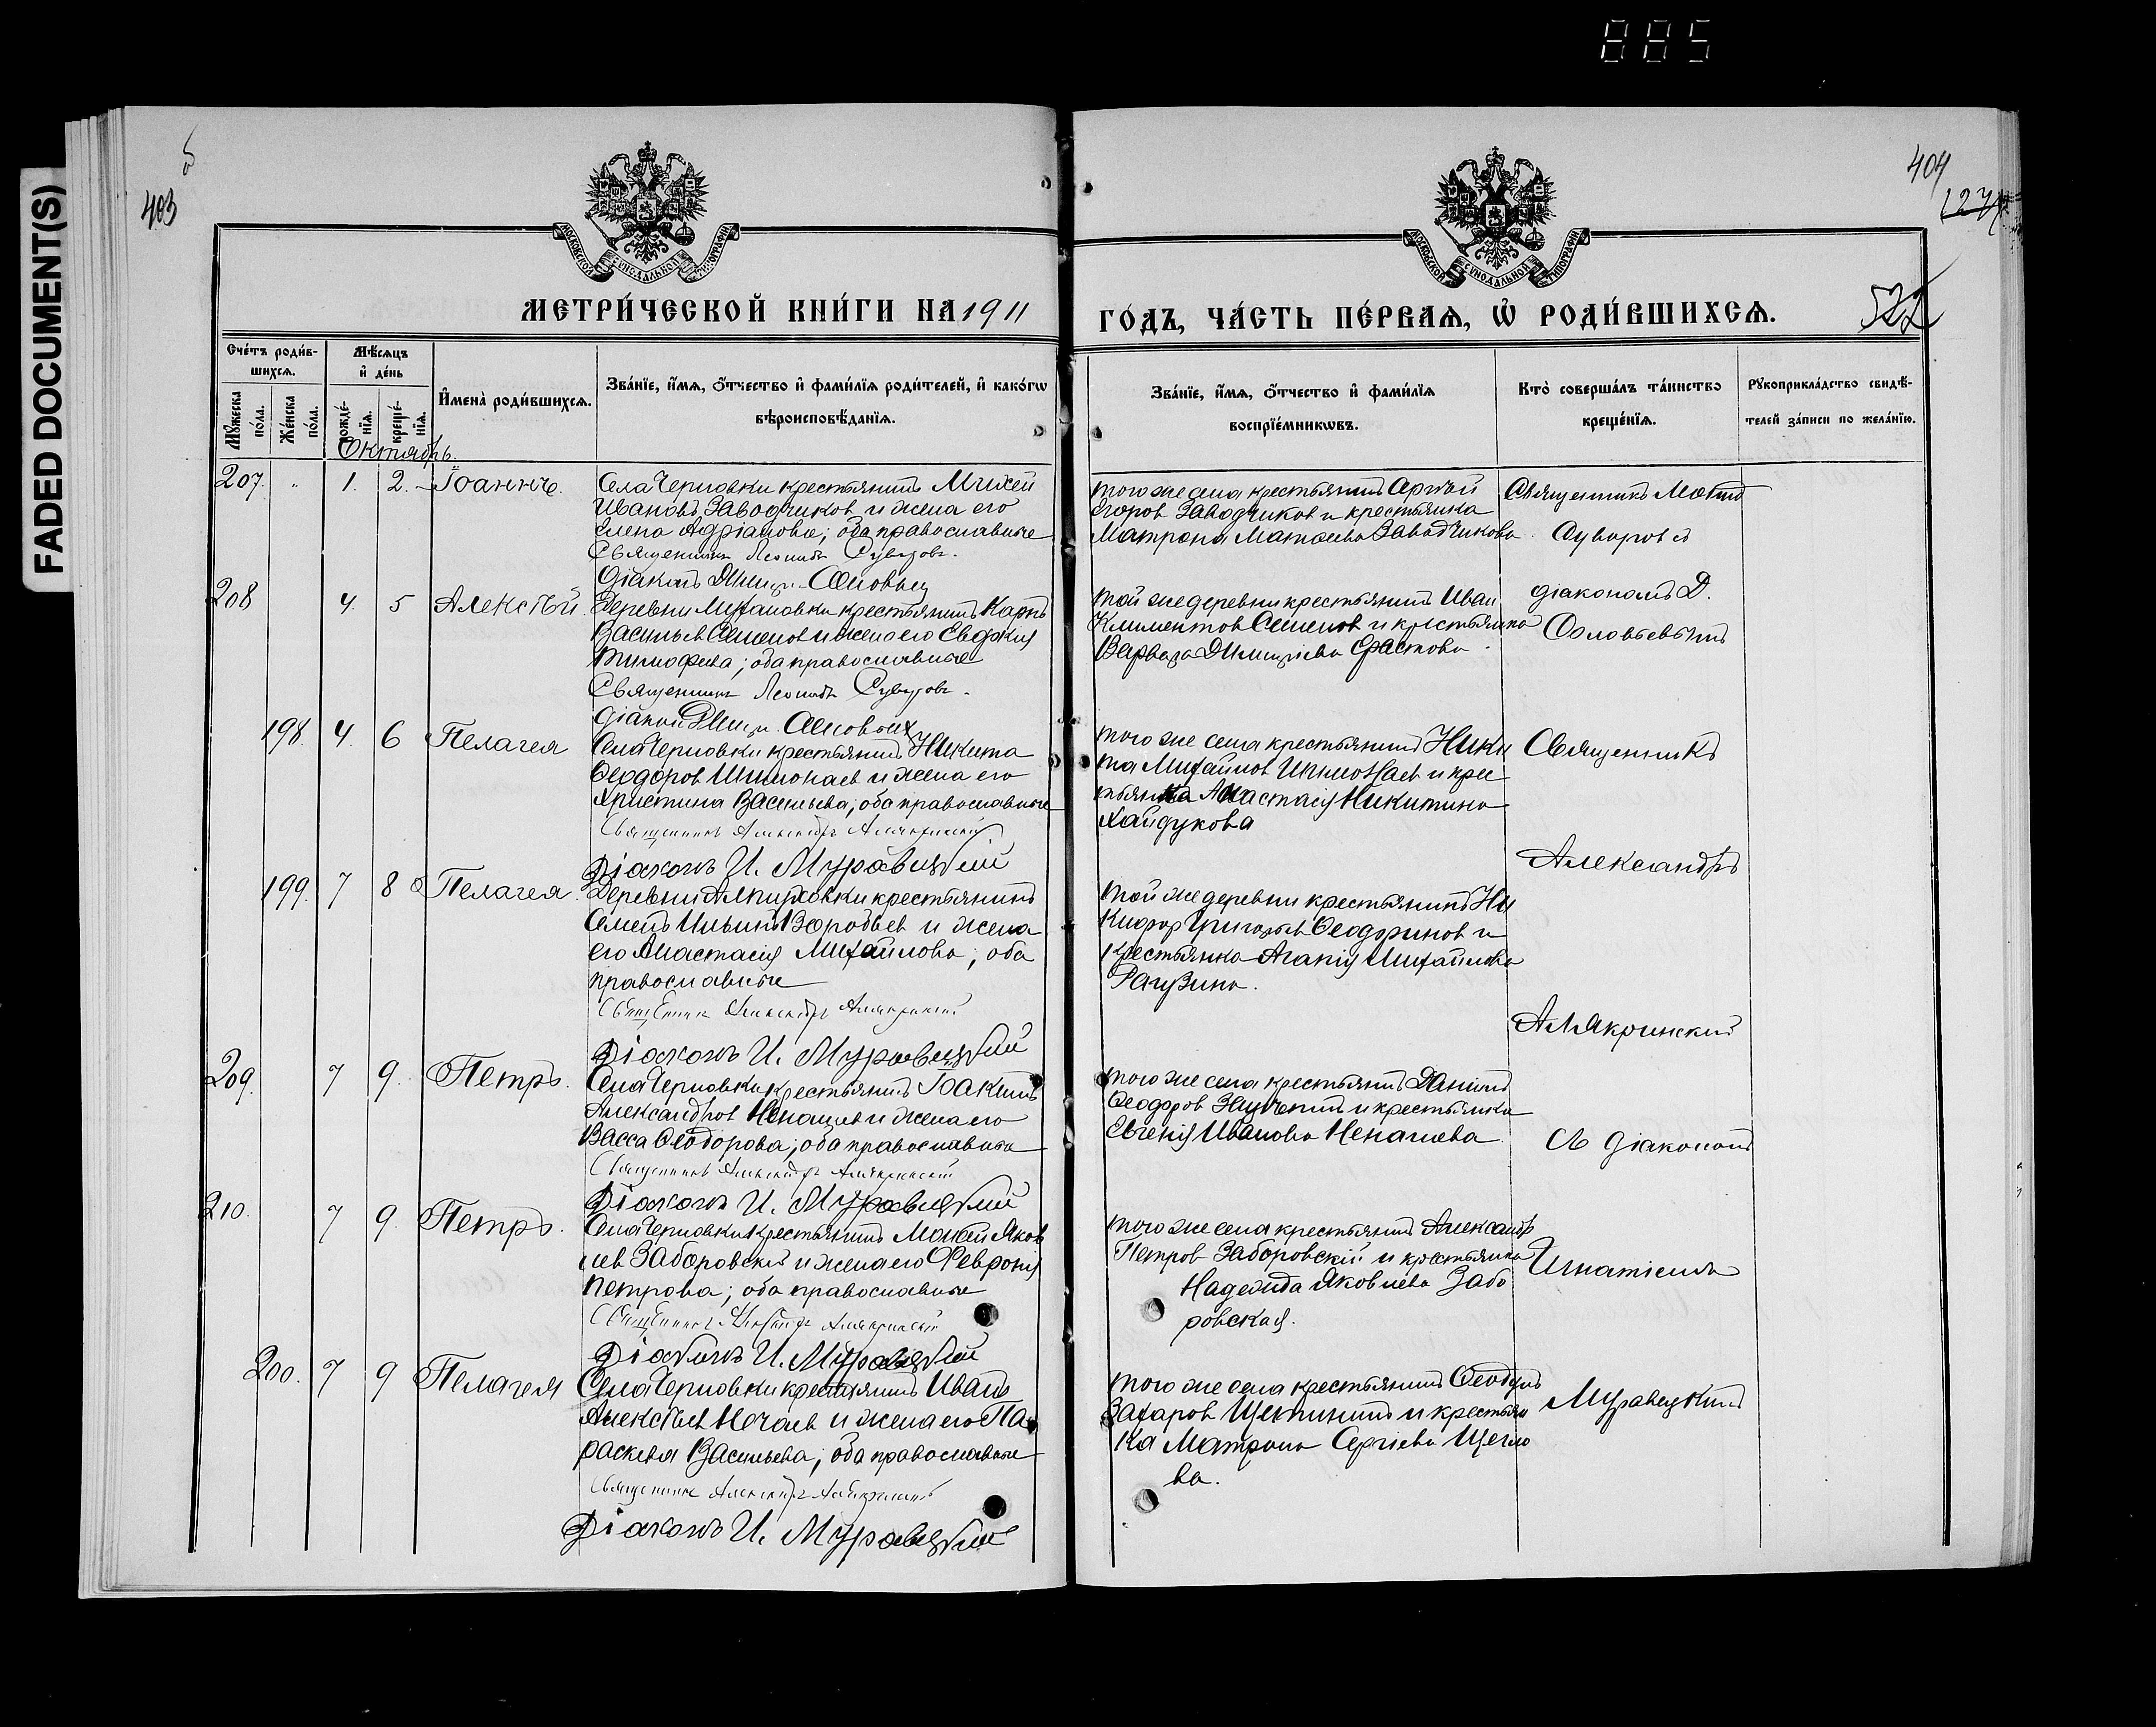 885
FADED DOCUMENT(S)
403
404
МОСКОВСКОЙ СѴНОДАЛЬНОЙ ТИПОГРАФІИ
МОСКОВСКОЙ СѴНОДАЛЬНОЙ ТИПОГРАФІИ
МЕТРИ́ЧЕСКОЙ КНИ́ГИ НА 1911
ГО́ДЪ, ЧА́СТЬ ПЕ́РВАЯ, Ѡ҆ РОДИ́ВШИХСЯ.
522
Сче́тъ роди́в-
шихся.
Мꙋ́жеска по́ла.
Же́нска по́ла.
Мѣ́сяцъ
и҆ де́нь
рожде́-нїя.
креще́-нїя.
И҆мена̀ роди́вшихся.
Зва́нїе, и҆́мя, ѻ҆́тчество и҆ фами́лїя роди́телей, и҆ како́гѡ
вѣроисповѣ́данїя.
Зва́нїе, и҆́мя, ѻ҆́тчество и҆ фами́лїя
воспрїе́мникѡвъ.
Кто̀ соверша́лъ та́инство
креще́нїя.
Рꙋкоприкла́дство свидѣ́-
телей за́писи по жела́нїю.
Октябрь.
207. " 1. 2. Іоаннъ.
Села Черновки крестьянинъ Михей
Ивановъ Заводчиков и жена его
Елена Адріановна; оба православные
Священникъ Леонидъ Суворовъ.
діаконъ Димитр. Соловьев
того же села крестьянинъ
Егоров Заводчиков и крестьянка
Матрона Матѳеева Заводчикова.
Священникъ
Суворовъ
208 4. 5 Алексѣй.
Деревни Михайловки крестьянинъ Карпъ
Васильев Семенов и жена его Евдокія
Тимофеева; оба православные
Священникъ Леонидъ Суворовъ.
діакон Димитр. Соловьев
той же деревни крестьянинъ Иван
Климентов Семенов и крестьянка
Варвара Димитріева Фастова.
діакономъ Д.
Соловьевымъ
198. 4. 6 Пелагея
Села Черновки крестьянинъ Никита
Ѳеодоров Шишонаев и жена его
Христина Васильева; оба православные
Священникъ Александръ Алякринскій
Діаконъ И. Муравицкій
того же села крестьянинъ Ники
та Михайлов и крес
тьянка Анастасія Никитина
Хайдукова
Священникъ
Александръ
199. 7 8 Пелагея.
Деревни крестьянинъ
Семенъ Ильинъ Воробьев и жена
его Анастасія Михайлова; оба
православные
Священникъ Александръ Алякринскій
Діаконъ И. Муравицкій
той же деревни крестьянинъ Ни
кифор Григорьев и
крестьянка Агапія Михайлова
Рагузина.
Алякринскій
209. 7 9. Петръ.
Села Черновки крестьянинъ Іоакимъ
Александров Ненашев и жена его
Васса Ѳеодорова; оба православные
Священникъ Александръ Алякринскій
Діаконъ И. Муравицкій
того же села крестьянинъ Даніилъ
Ѳеодоров и крестьянка
Евгенія Иванова Ненашева.
съ діакономъ
210. 7 9. Петръ.
Села Черновки крестьянинъ Матѳей Яков
лев Заборовскій и жена его Февронія
Петрова; оба православные
Священникъ Александръ Алякринскій
Діаконъ И. Муравицкій
того же села крестьянинъ Александр
Петров Заборовскій и крестьянка
Надежда Яковлева Забо
ровская.
Игнатіемъ
200. 7 9 Пелагея
Села Черновки крестьянинъ Иванъ
Алексѣев Нечаев и жена его Па
раскева Васильева; оба православные
Священникъ Александръ Алякринскій
Діаконъ И. Муравицкій
того же села крестьянинъ
Захаров и крестьян
ка Матрона Сергіева Щегло
ва.
Муравицкимъ